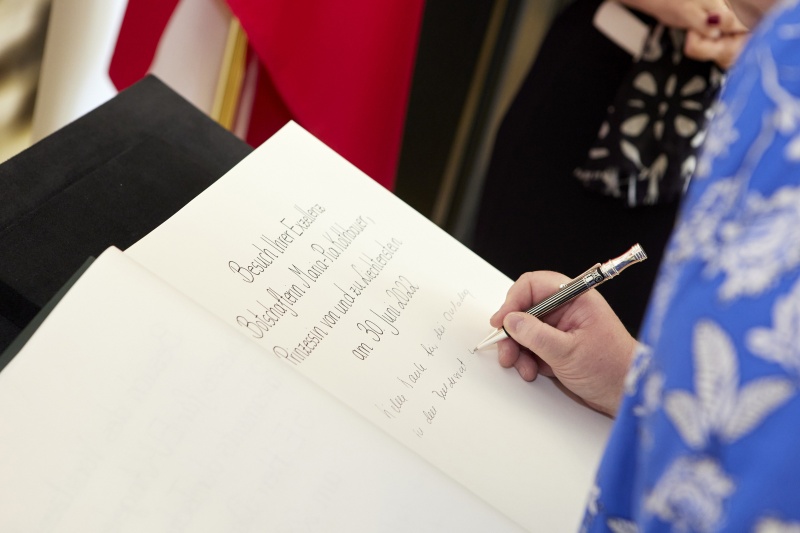 Besuch Ihrer Exzellenz
Botschafterin Maria-Pia Kothbauer,
Prinzessin von und zu Liechtenstein
am 30 Juni 2022
Vielen Dank für die
in der